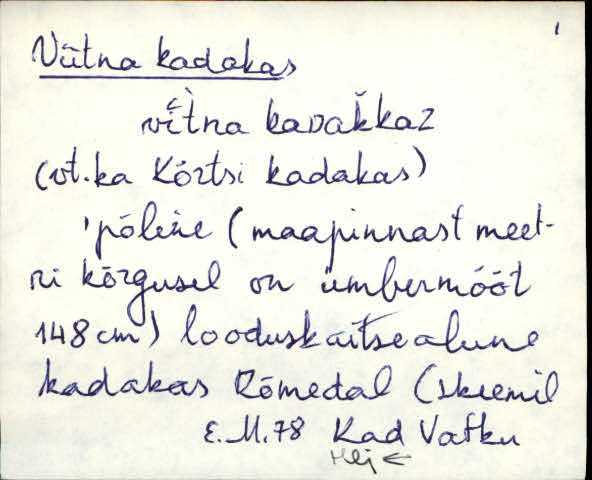 1
Viitna kadakas
vītna kaᴅak̆kaz
(vt. ka Kõrtsi kadakas)
'põline (maapinnast meet-
ri kõrgusel on ümbermõõt
148 cm) looduskaitsealune
kadakas Rõmedal (skeemil
E.M.78 Kad Vatku
Hlj ←